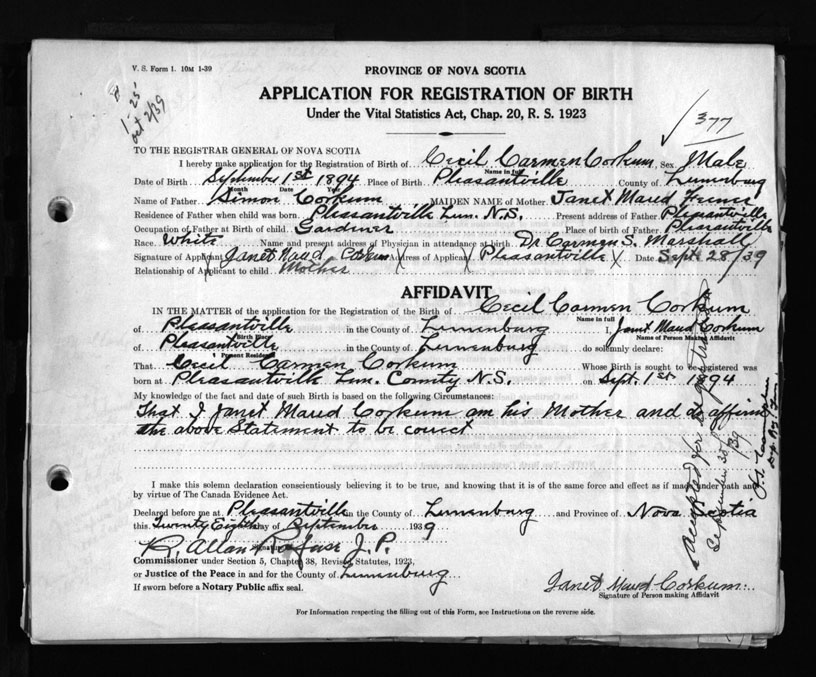 V. S. Form 1. 10M 1-39
1-25
Oct 2/39
PROVINCE OF NOVA SCOTIA
APPLICATION FOR REGISTRATION OF BIRTH
Under the Vital Statistics Act, Chap. 20, R. S. 1923
377
TO THE REGISTRAR GENERAL OF NOVA SCOTIA
I hereby make application for the Registration of Birth of Cecil Carmen Corkum Sex Male
Name in full
Date of Birth September 1st 1894 Place of Birth Pleasantville County of Lunenburg
Month Date Year
Name of Father Simon Corkum MAIDEN NAME of Mother Janet Maud
Residence of Father when child was born Pleasantville Lun. N.S. Present address of Father Pleasantville
Occupation of Father at Birth of child Gardiner Place of birth of Father Pleasantville
Race White Name and present address of Physician in attendance at birth Dr Carmen S. Marshall
Signature of Applicant Janet Maud Corkum Address of Applicant Pleasantville Date Sept 28/39
Relationship of Applicant to child Mother
AFFIDAVIT
IN THE MATTER of the application for the Registration of the Birth of Cecil Carmen Corkum
Name in full
of Pleasantville in the County of Lunenburg I, Janet Maud Corkum
Birth Place Name of Person Making Affidavit
of Pleasantville in the County of Lunenburg do solemnly declare:
Present Residence
That Cecil Carmen Corkum Whose Birth is sought to be registered was
born at Pleasantville Lun. County N.S. on Sept. 1st 1894
My knowledge of the fact and date of such Birth is based on the following Circumstances:
That I Janet Maud Corkum am his Mother and do affirm
the above Statement to be correct
I make this solemn declaration conscientiously believing it to be true, and knowing that it is of the same force and effect as if made under oath and
by virtue of The Canada Evidence Act.
Declared before me at Pleasantville in the County of Lunenburg and Province of Nova Scotia
this Twenty Eighth day of September 1939
R. Allan Rafuse J.P.
Commissioner under Section 5, Chapter 38, Revised Statutes, 1923,
or Justice of the Peace in and for the County of Lunenburg
If sworn before a Notary Public affix seal.
Janet Maud Corkum
Signature of Person making Affidavit
For Information respecting the filling out of this Form, see Instructions on the reverse side.
Accepted for registration
September 30/39